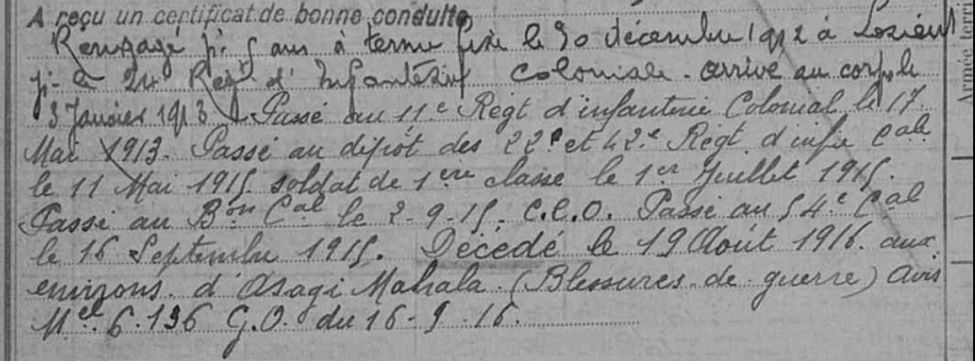 A reçu un certificat de bonne conduite
Rengagé pr 5 ans à terme fixe le 30 décembre 1912 à Lorient
pr le 2e Régt d'Infanterie Coloniale. arrivé au corps le
3 Janvier 1913. Passé au 11e Régt d'infanterie Colonial. le 17
Mai 1913. Passé au dépôt des 22e et 42e Regt d'infie Cale
le 11 Mai 1915. soldat de 1ère classe le 1er Juillet 1915.
Passé au Bon Cal le 2-9-15. C.C.O. Passé au 54e Cal
le 16 Septembre 1915. Décédé le 19 Août 1916. aux
environs. d'Asagi Mahala. (Blessures. de guerre) Avis
Mel 6.136 G.O. du 16-9.16.
Armée terri